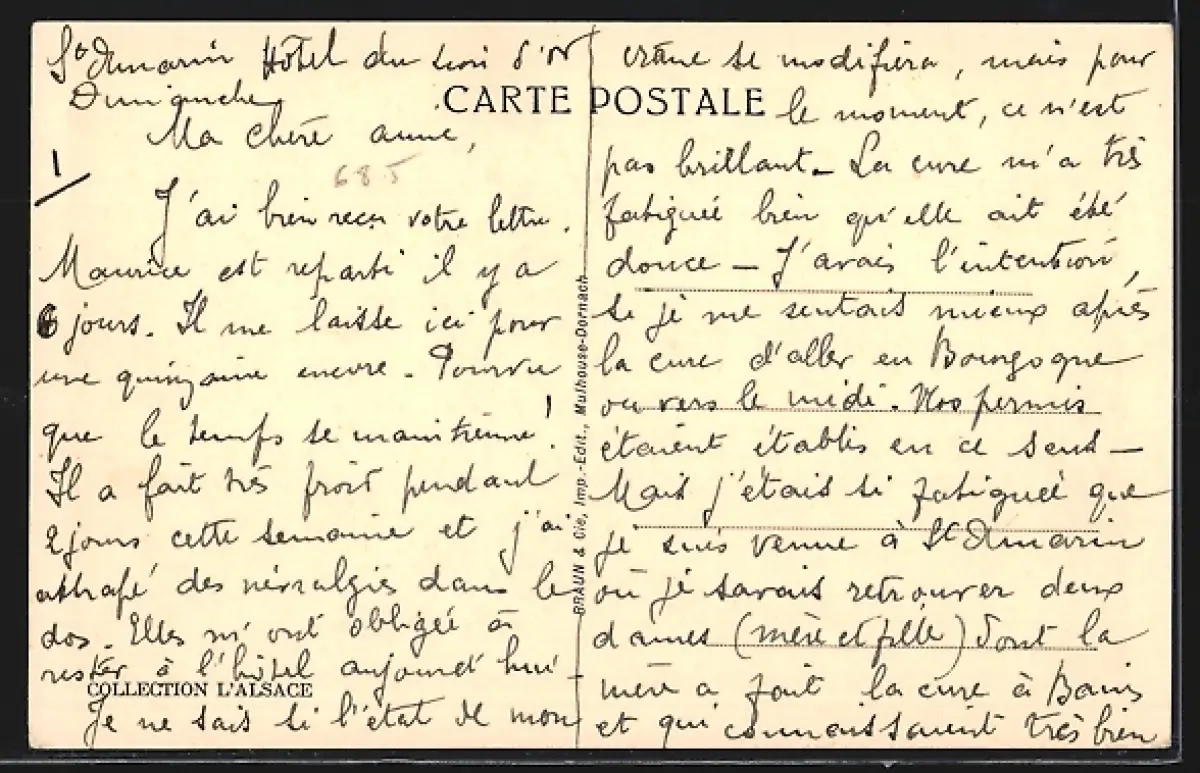 St Amarin Hôtel du Lion d'or
Dimanche
Ma chère anne,
1/
685
J'ai bien reçu votre lettre.
Maurice est reparti il y a
6 jours. Il me laisse ici pour
une quinzaine encore. Pourvu
que le temps se maintienne!
Il a fait très froid pendant
2 jours cette semaine et j'ai
attrapé des névralgies dans le
dos. Elles m'ont obligée à
rester à l'hôtel aujourd'hui -
COLLECTION L'ALSACE
Je ne sais si l'état de mon
CARTE POSTALE
BRAUN & Cie, Imp.-Edit., Mulhouse-Dornach
crâne se modifiera, mais pour
le moment, ce n'est
pas brillant - La cure m'a très
fatiguée bien qu'elle ait été
douce - J'avais l'intention,
si je me sentais mieux après
la cure d'aller en Bourgogne
ou vers le midi. Nos permis
étaient établis en ce sens -
Mais j'étais si fatiguée que
je suis venue à St Amarin
où je savais retrouver deux
dames (mère et fille) dont la
mère a fait la cure à Bains
et qui connaissaient très bien